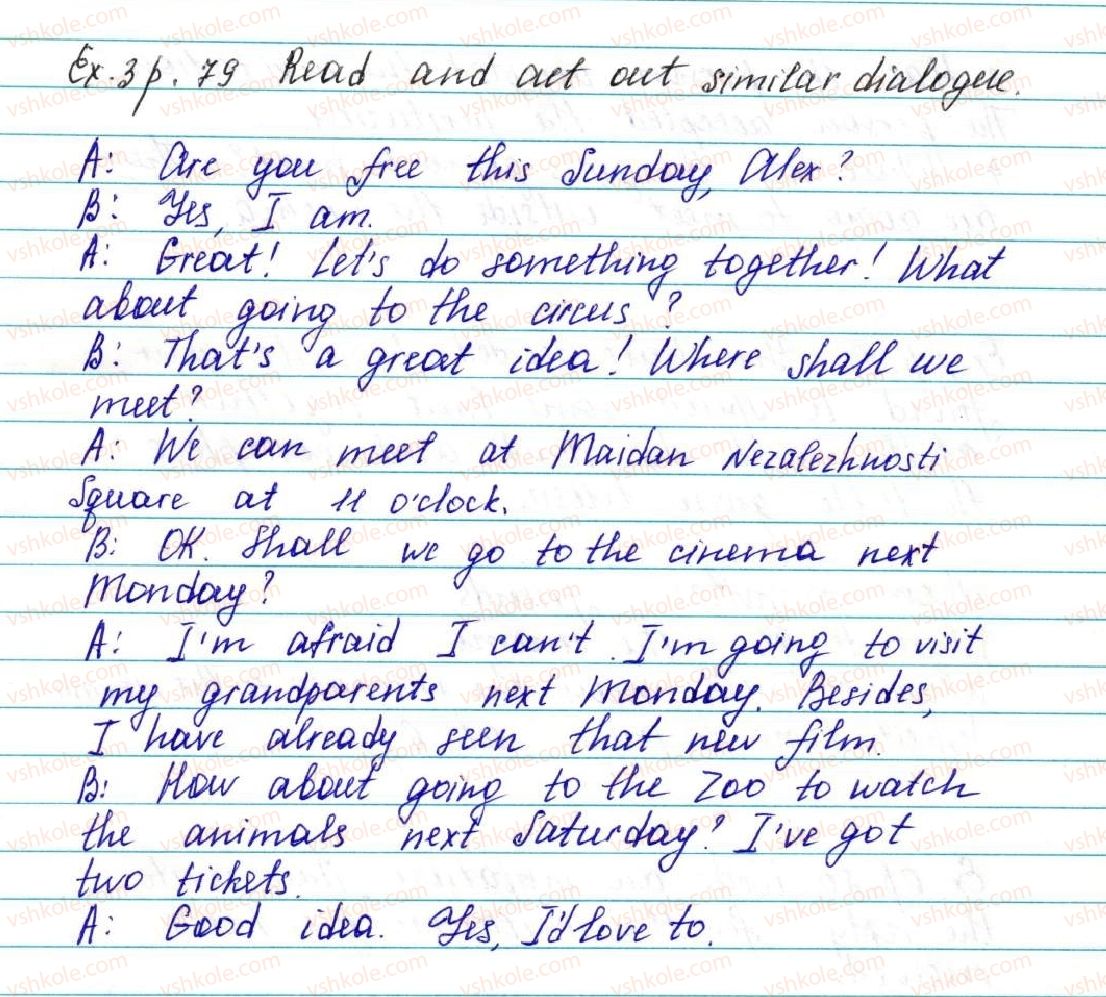 Ex. 3 p. 79 Read and act out similar dialogue.
A: Are you free this Sunday, Alex?
B: Yes, I am.
A: Great! Let's do something together! What
about going to the circus?
B: That's a great idea! Where shall we
meet?
A: We can meet at Maidan Nezalezhnosti
Square at 11 o'clock.
B: OK. Shall we go to the cinema next
Monday?
A: I'm afraid I can't. I'm going to visit
my grandparents next Monday. Besides,
I have already seen that new film.
B: How about going to the zoo to watch
the animals next Saturday? I've got
two tickets.
A: Good idea. Yes, I'd love to.
vshkole.com